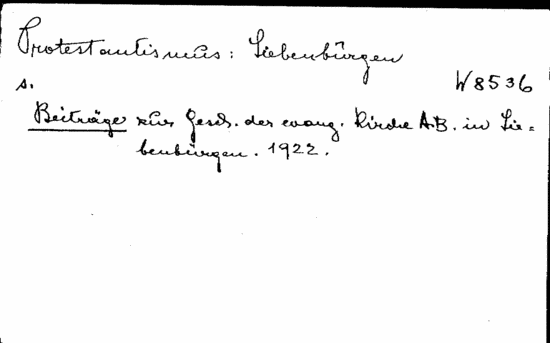 Protestantismus: Siebenbürgen
W 8536
s.
Beiträge zur Gesch. der evang. Kirche A.B. in Sie=
benbürgen. 1922.